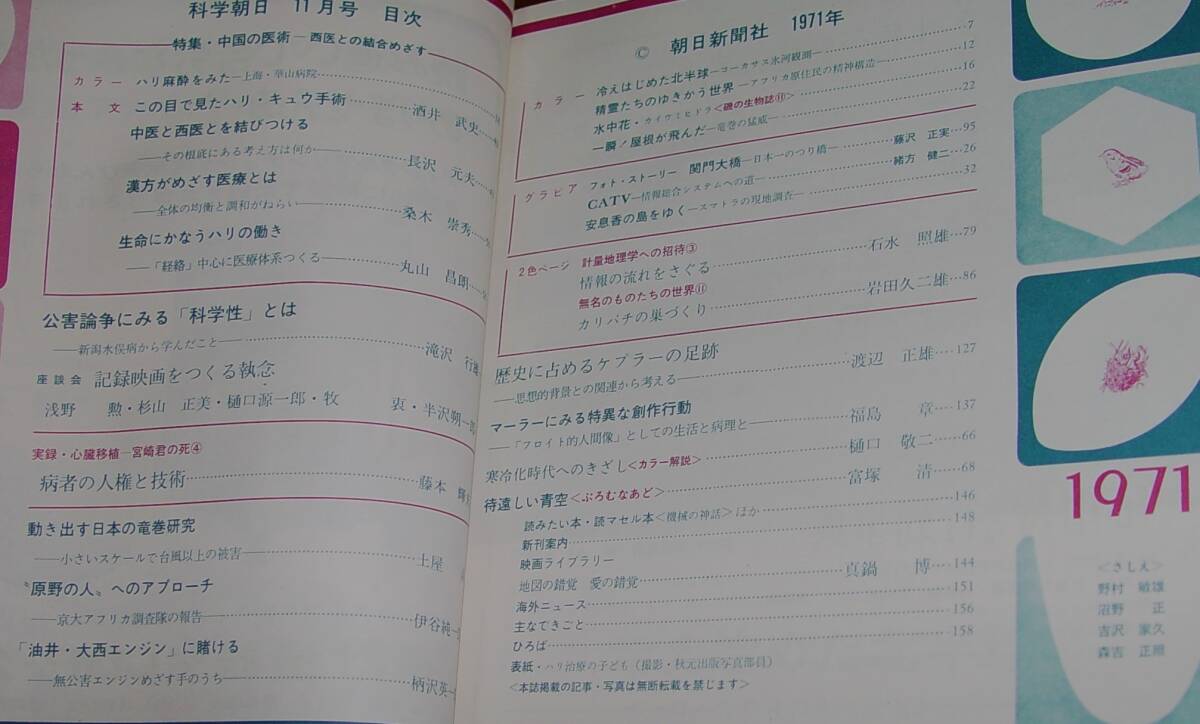 科学朝日 11月号 目次
特集・中国の医術―西医との結合めざす
カラー ハリ麻酔をみた―上海・華山病院
本文 この目で見たハリ・キュウ手術 酒井 武史
中医と西医とを結びつける
――その根底にある考え方は何か 長沢 元夫
漢方がめざす医療とは
――全体の均衡と調和がねらい 桑木 崇秀
生命にかなうハリの働き
――「経絡」中心に医療体系つくる 丸山 昌朗
公害論争にみる「科学性」とは
――新潟水俣病から学んだこと―― 滝沢 行
座談会 記録映画をつくる執念
浅野 勲・杉山 正美・樋口源一郎・牧 衷・半沢朔一
実録・心臓移植―宮崎君の死④
病者の人権と技術 藤本
動き出す日本の竜巻研究
――小さいスケールで台風以上の被害―― 土屋
〝原野の人〟へのアプローチ
――京大アフリカ調査隊の報告―― 伊谷純一
「油井・大西エンジン」に賭ける
――無公害エンジンめざす手のうち―― 柄沢英一
© 朝日新聞社 1971年
カラー 冷えはじめた北半球―コーカサス氷河観測― 7
精霊たちのゆきかう世界―アフリカ原住民の精神構造― 12
水中花・カイウミヒドラ<磯の生物誌⑪> 16
一瞬！屋根が飛んだ―竜巻の猛威― 22
グラビア フォト・ストーリー 関門大橋―日本一のつり橋― 藤沢 正実…95
CATV―情報総合システムへの道― 緒方 健二…26
安息香の島をゆく―スマトラの現地調査― 32
2色ページ 計量地理学への招待③
情報の流れをさぐる 石水 照雄…79
無名のものたちの世界⑪
カリバチの巣づくり 岩田久二雄…86
歴史に占めるケプラーの足跡
――思想的背景との関連から考える―― 渡辺 正雄…127
マーラーにみる特異な創作行動
――「フロイト的人間像」としての生活と病理と―― 福島 章…137
寒冷化時代へのきざし<カラー解説> 樋口 敬二…66
待遠しい青空<ぷろむなあど> 富塚 清…68
読みたい本・読マセル本<機械の神話>ほか 146
新刊案内 148
映画ライブラリー
地図の錯覚 愛の錯覚 真鍋 博…144
海外ニュース 151
主なできごと 156
ひろば 158
表紙・ハリ治療の子ども（撮影・秋元出版写真部員）
<本誌掲載の記事・写真は無断転載を禁じます>
1971
<さしえ>
野村 敏雄
沼野 正
吉沢 家久
森吉 正照